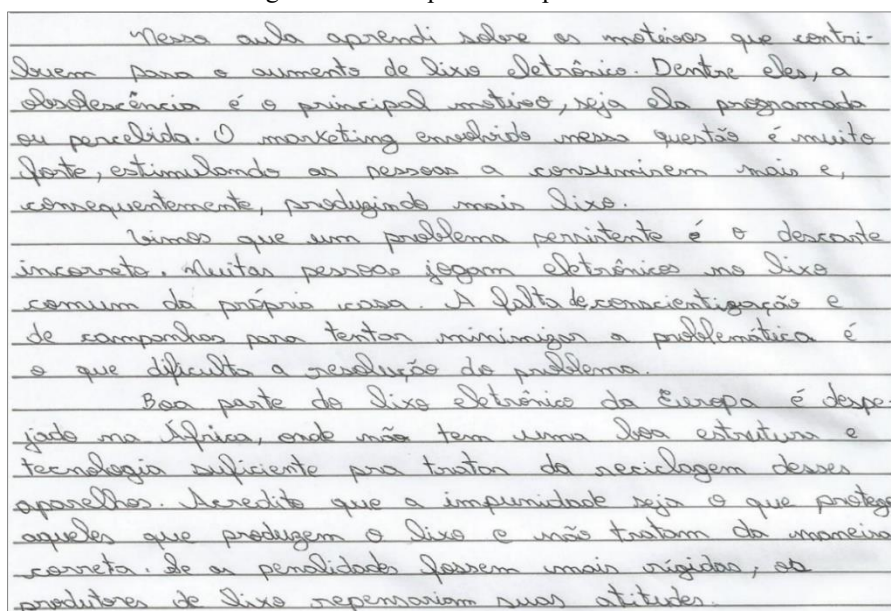 Nessa aula aprendi sobre os motivos que contri-
buem para o aumento de lixo eletrônico. Dentre eles, a
obsolescência é o principal motivo, seja ela programada
ou percebida. O marketing envolvido nessa questão é muito
forte, estimulando as pessoas a consumirem mais e,
consequentemente, produzindo mais lixo.
Vimos que um problema persistente é o descarte
incorreto. Muitas pessoas jogam eletrônicos no lixo
comum da própria casa. A falta de conscientização e
de campanhas para tentar minimizar a problemática é
o que dificulta a resolução do problema.
Boa parte do lixo eletrônico da Europa é despe-
jado na África, onde não tem uma boa estrutura e
tecnologia suficiente pra tratar da reciclagem desses
aparelhos. Acredito que a impunidade seja o que protege
aqueles que produzem o lixo e não tratam da maneira
correta. Se as penalidades fossem mais rígidas, os
produtores de lixo repensariam suas atitudes.